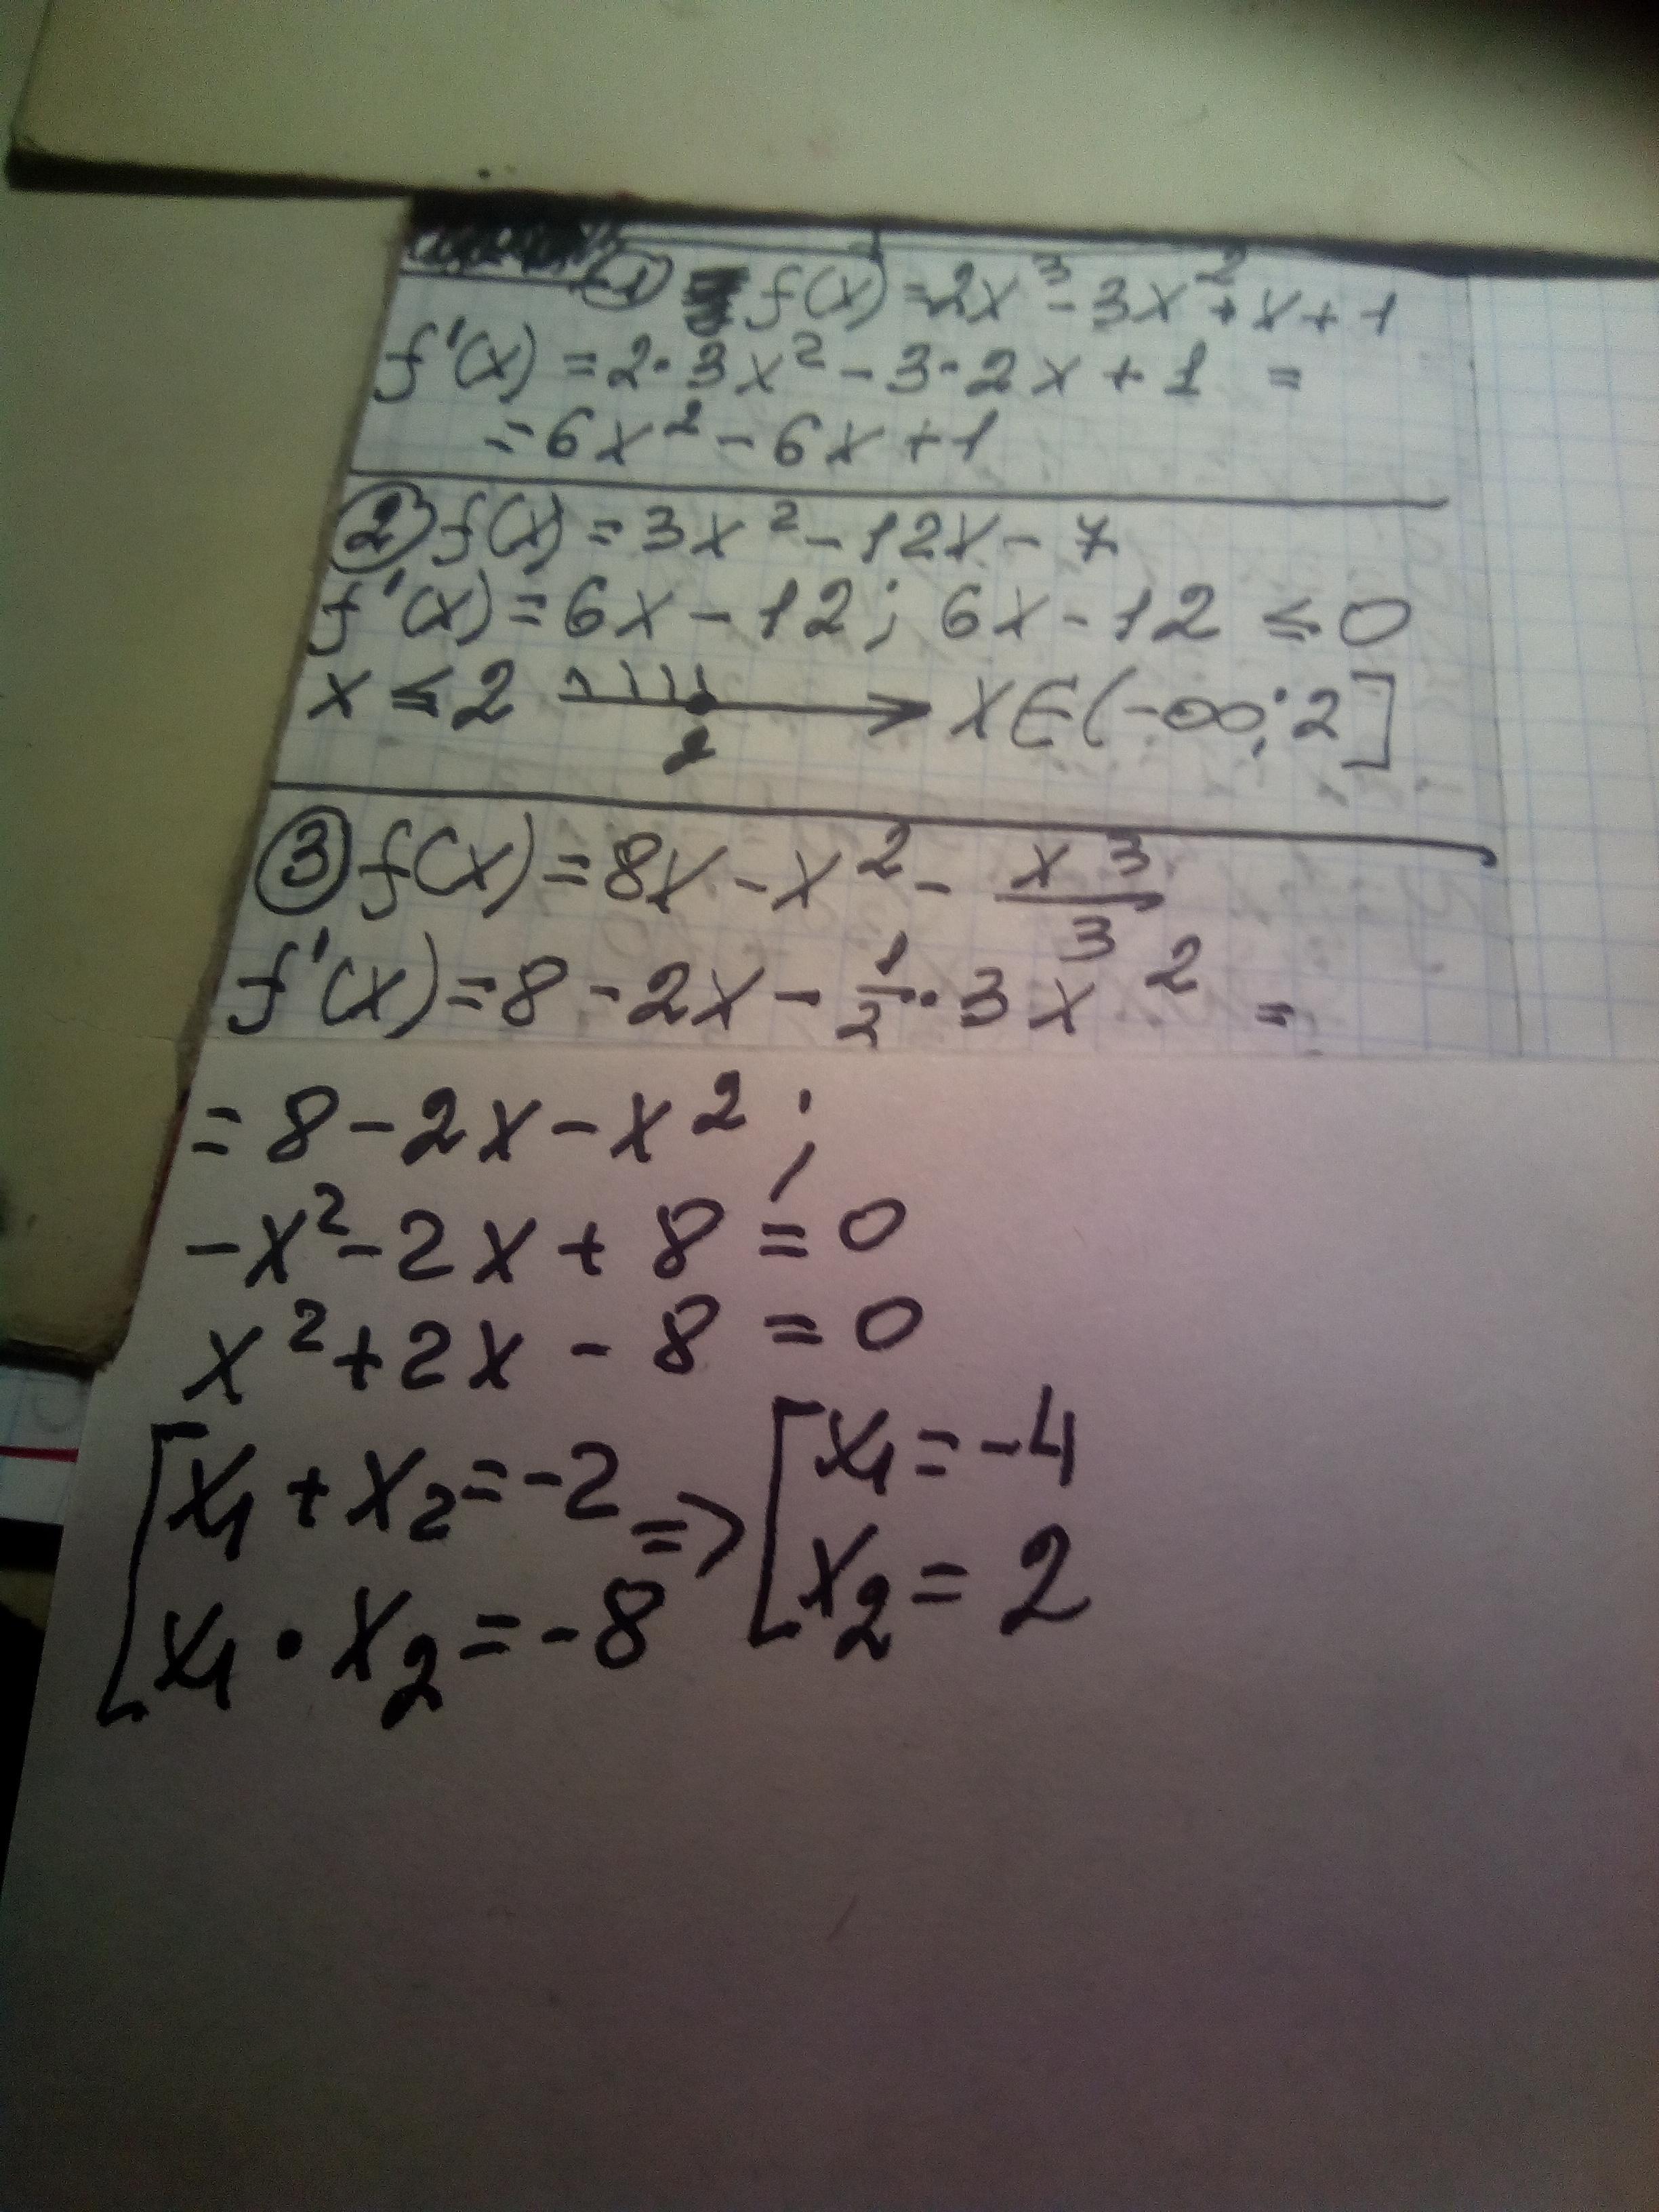 ① f(x) = 2x³ - 3x² + x + 1
f'(x) = 2·3x² - 3·2x + 1 =
= 6x² - 6x + 1
② f(x) = 3x² - 12x - 7
f'(x) = 6x - 12; 6x - 12 ≤ 0
x ≤ 2 2 x∈(-∞; 2]
③ f(x) = 8x - x² - x³/3
f'(x) = 8 - 2x - 1/2·3x² =
= 8 - 2x - x²;
-x² - 2x + 8 = 0
x² + 2x - 8 = 0
[x₁ + x₂ = -2 => [x₁ = -4
x₁ · x₂ = -8 x₂ = 2